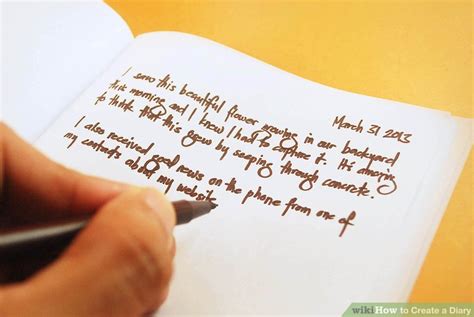 March 31 2013
I saw this beautiful flower growing in our backyard
this morning and I knew I had to capture it. It's amazing
to think that this grew by seeping through concrete.
I also received good news on the phone from one of
my contacts about my website
wikiHow to Create a Diary